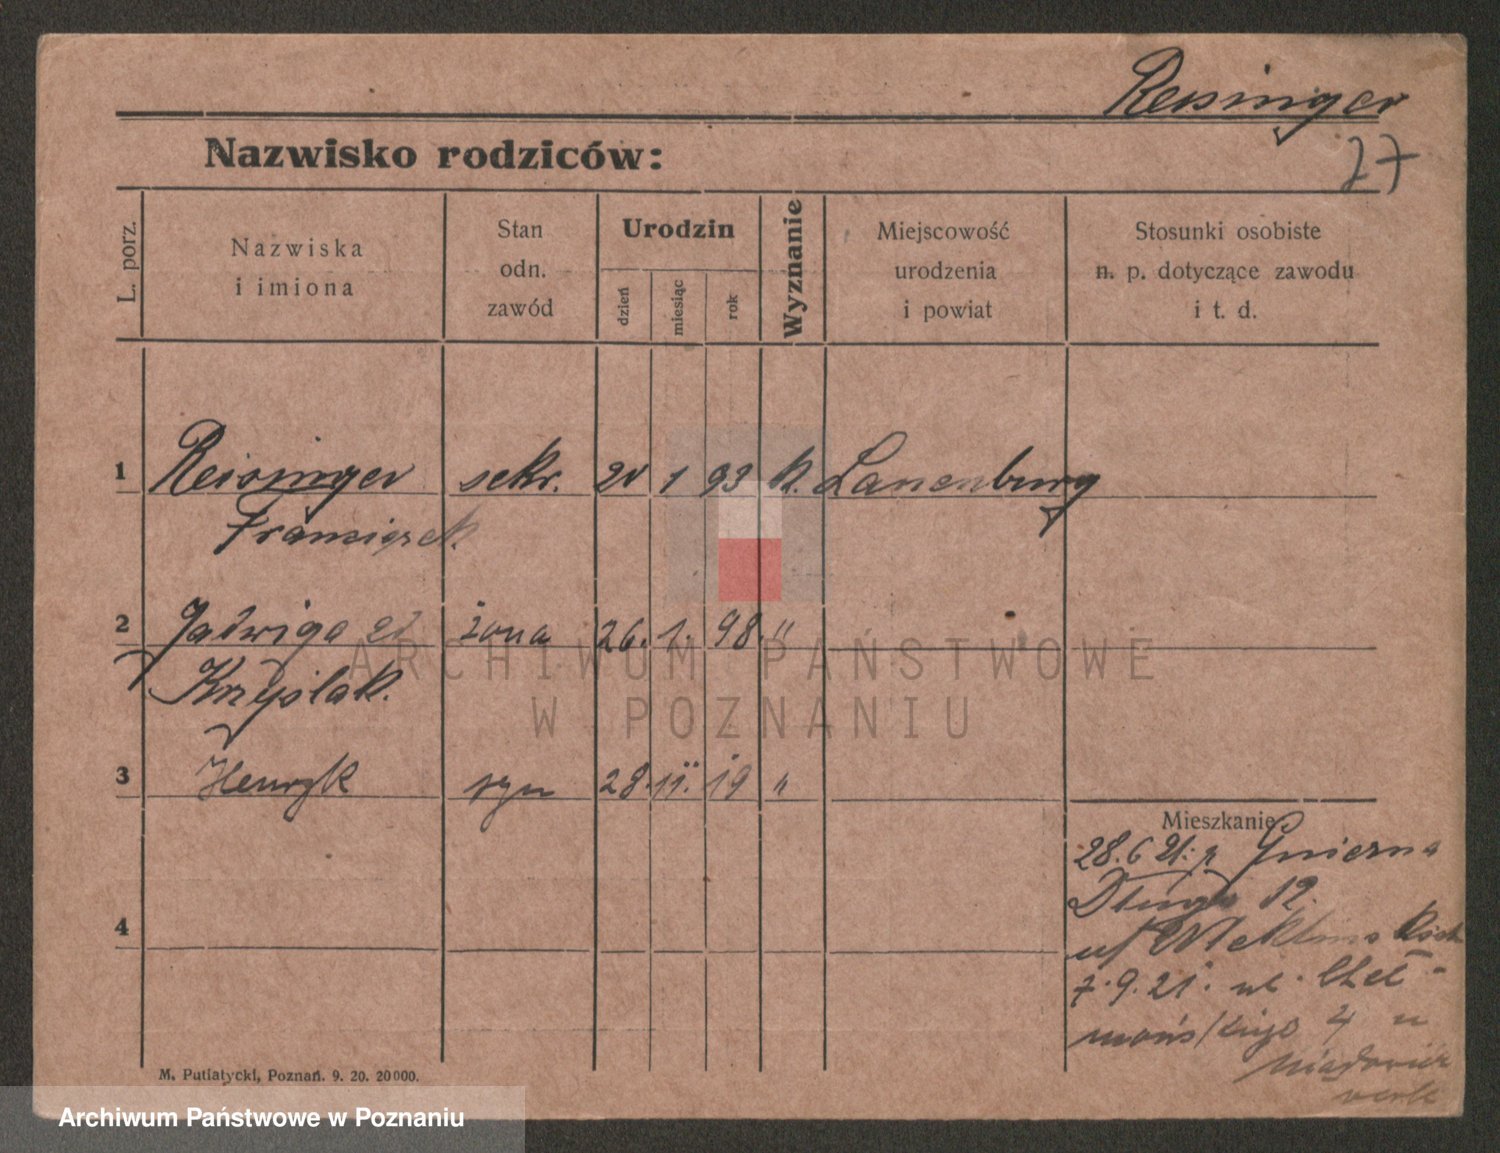 Reisinger
27
Nazwisko rodziców:
L. porz.
Nazwiska
i imiona
Stan
odn.
zawód
Urodzin
dzień
miesiąc
rok
Wyznanie
Miejscowość
urodzenia
i powiat
Stosunki osobiste
n. p. dotyczące zawodu
i t. d.
1 Reisinger sekr. 1 93 k. Lauenburg
Franciszek
2 Jadwiga żona 26. 1. 98. "
Krzyślak.
3 Henryk syn 28. 11. 19 "
Mieszkanie
28.6 21. z Gniezna
Długa 12.
7.9.21. ul. Cheł-
mońskiego 4
4
M. Putiatycki, Poznań. 9. 20. 20000.
ARCHIWUM PAŃSTWOWE
W POZNANIU
Archiwum Państwowe w Poznaniu